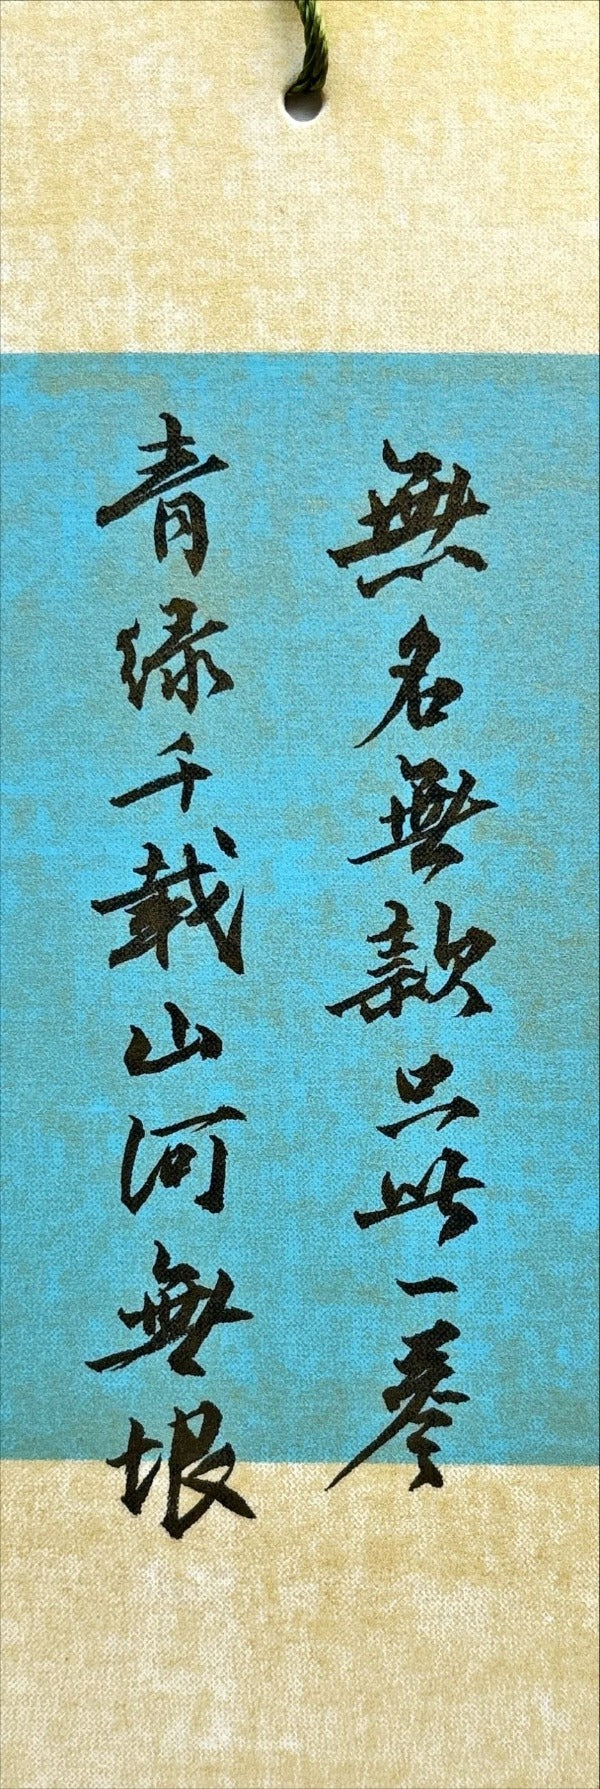 無名無款只此一卷
青绿千載山河無垠